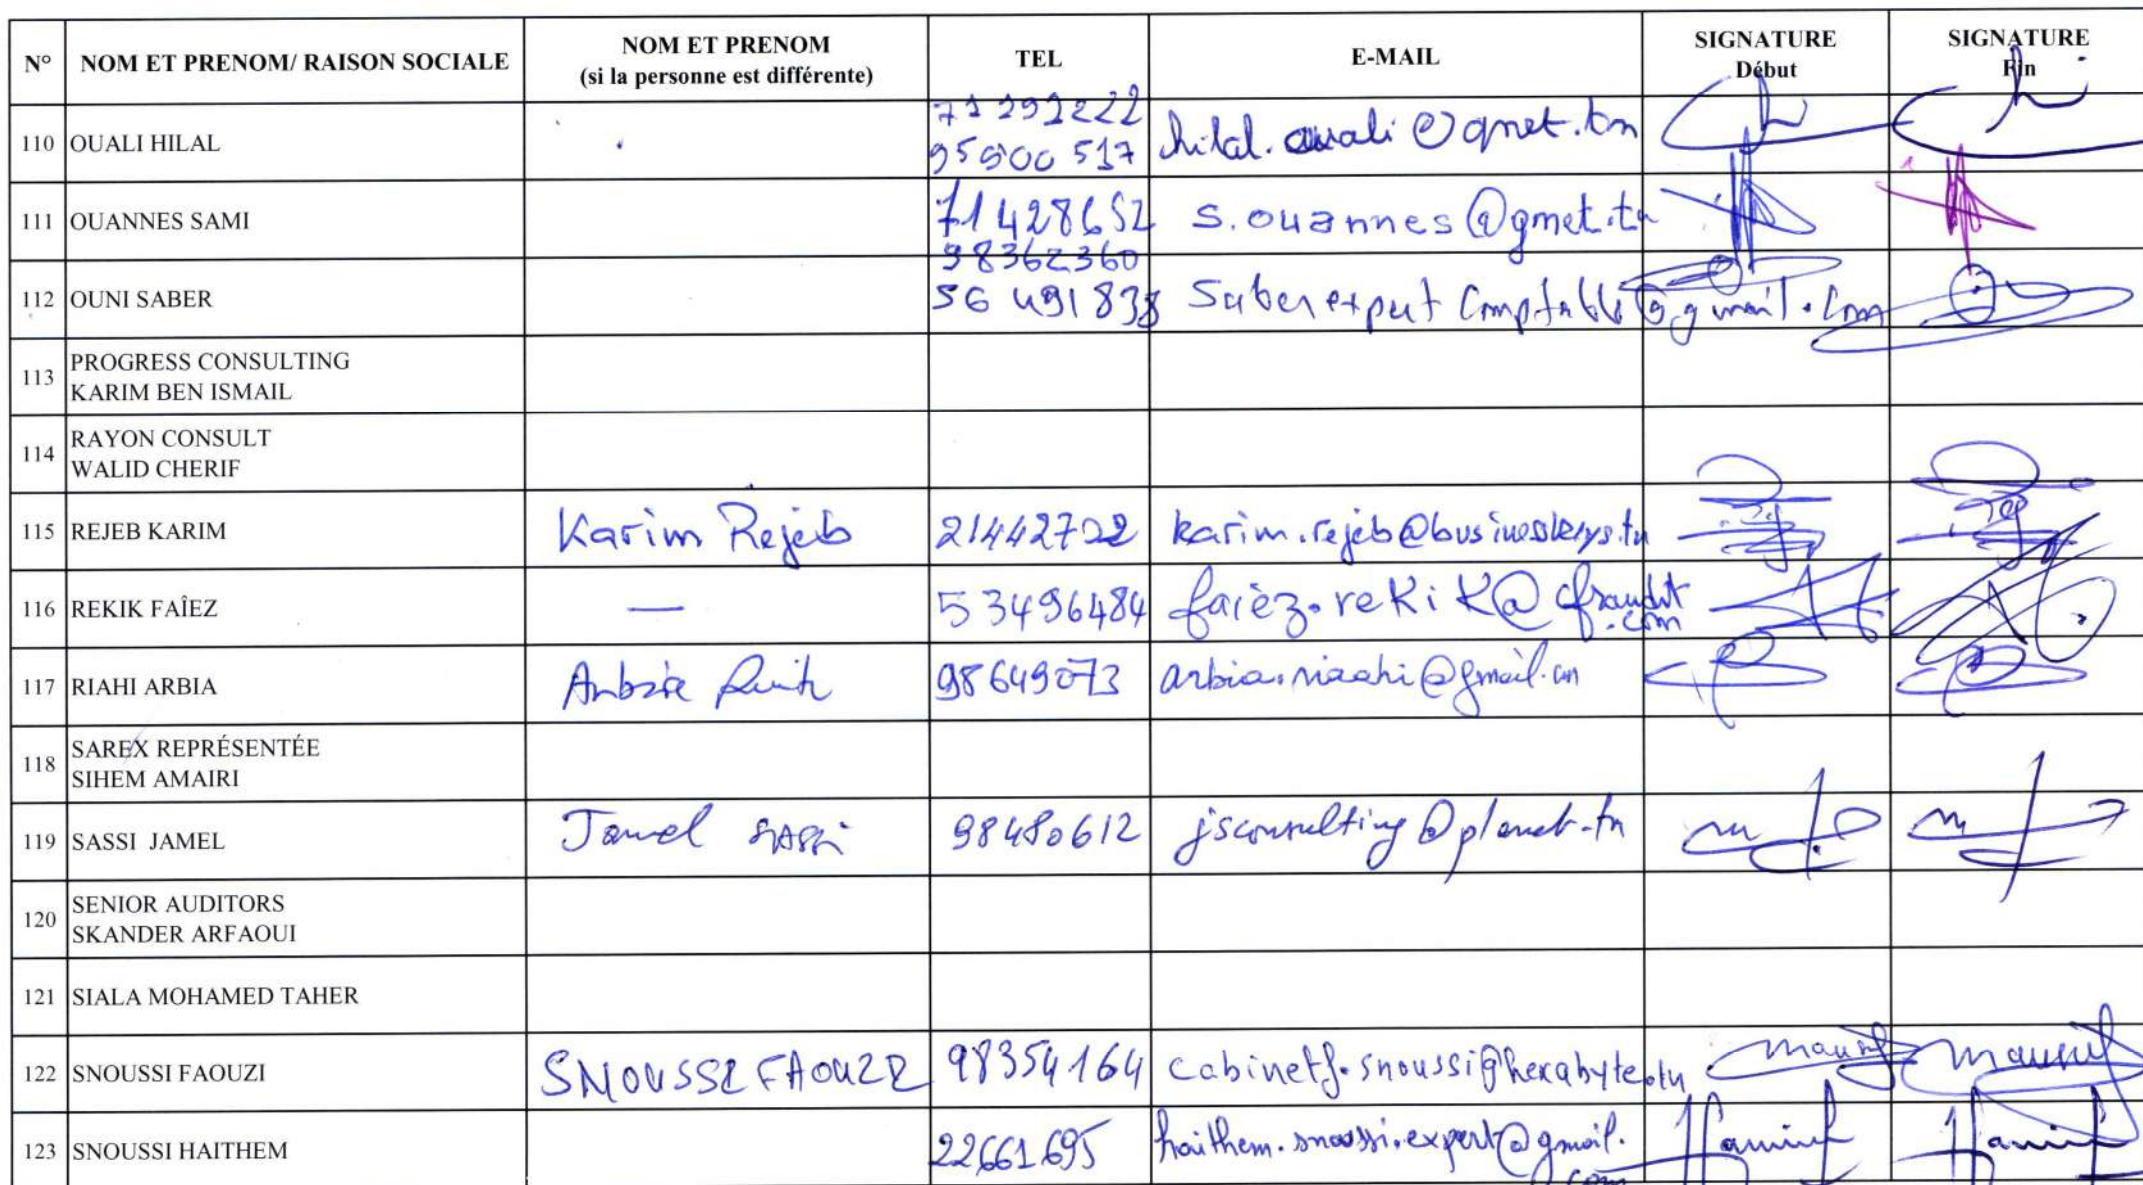 N° NOM ET PRENOM/ RAISON SOCIALE NOM ET PRENOM TEL E-MAIL SIGNATURE SIGNATURE
(si la personne est différente) Début Fin
71 292222
110 OUALI HILAL hilal.ouali@gnet.tn
95 900 517
111 OUANNES SAMI 71 428652 s.ouannes@gmet.tn
98362360
112 OUNI SABER 56 491 838 Saberexpertcomptable@gmail.com
113 PROGRESS CONSULTING
KARIM BEN ISMAIL
114 RAYON CONSULT
WALID CHERIF
115 REJEB KARIM Karim Rejeb 21442722 karim.rejeb@businesskeys.tn
116 REKIK FAÎEZ — 53496484 faièz.rekik@cfraudit
.com
117 RIAHI ARBIA Arbia 98649073 arbia.riaahi@gmail.com
118 SAREX REPRÉSENTÉE
SIHEM AMAIRI
119 SASSI JAMEL Jamel SASSi 98480612 jsconsulting@planet.tn
120 SENIOR AUDITORS
SKANDER ARFAOUI
121 SIALA MOHAMED TAHER
122 SNOUSSI FAOUZI SNOUSSI FAOUZI 98354164 cabinetf.snoussi@hexabyte.tn
123 SNOUSSI HAITHEM 22661695 haithem.snoussi.expert@gmail.
com